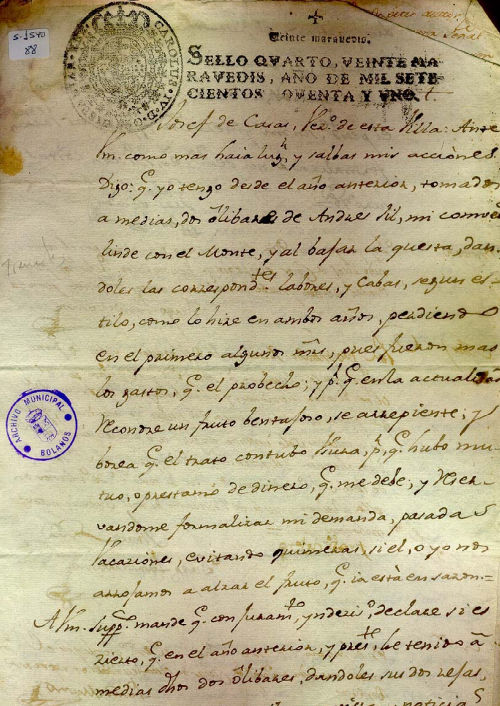 S-J570
88
CAROLUS
Veinte maravedis.
SELLO QVARTO, VEINTE MA-
RAVEDIS, AÑO DE MIL SETE-
CIENTOS OVENTA Y UNO.
Josef de Casas, Vez.º de esta Villa: Ante
Vm. como mas haia lug.r y salbas mis acciones
Digo: q.e yo tengo desde el año anterior, tomados
a medias, dos olibares de Andres Gil, mi conve
linde con el Monte, y al bajar la questa, dan-
doles las correspond.tes labores, y Cabas, segun es-
tilo, como lo hize en ambos años, perdiendo
en el primero algunos mrs, pues fueron mas
los gastos, q.e el probecho; y p.r q.e en la actualid.
reconoze un fruto bentajoso, se arrepiente; y
borea q.e el trato contubo Usura, p.r q.e hubo mu-
tuo, o prestamo de dinero, q.e me debe; y reser-
vandome formalizar mi demanda, pasadas
Vacaciones, evitando quimeras, si el, o yo nos
arrojamos a alzar el fruto, q.e ia està en sazon=
A Vm. supp.co mande q.e con juram.to, y, declare si es
zierto, q.e en el año anterior, y pres.te, he tenido à
medias dhos dos olibares, dandoles sus dos rejas,
noticia
ARCHIVO MUNICIPAL
BOLAÑOS